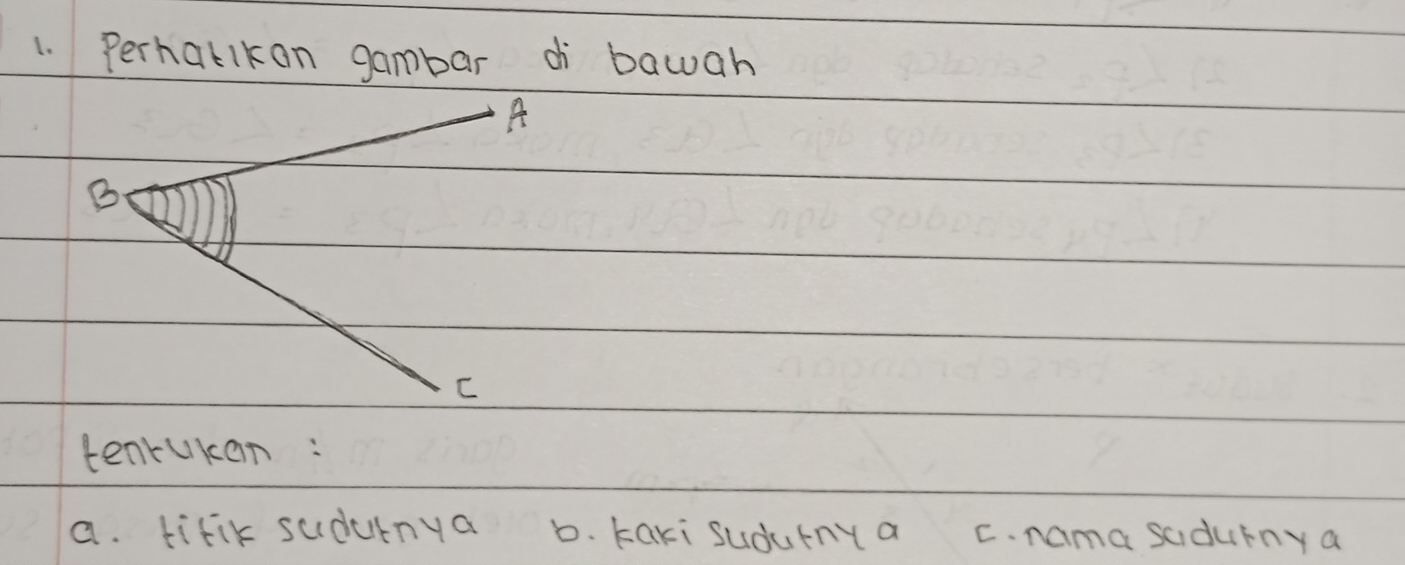 1. Perhatikan gambar di bawah
A
B
C
tentukan :
a. titik sudutnya b. kaki sudutnya c. nama sudutnya